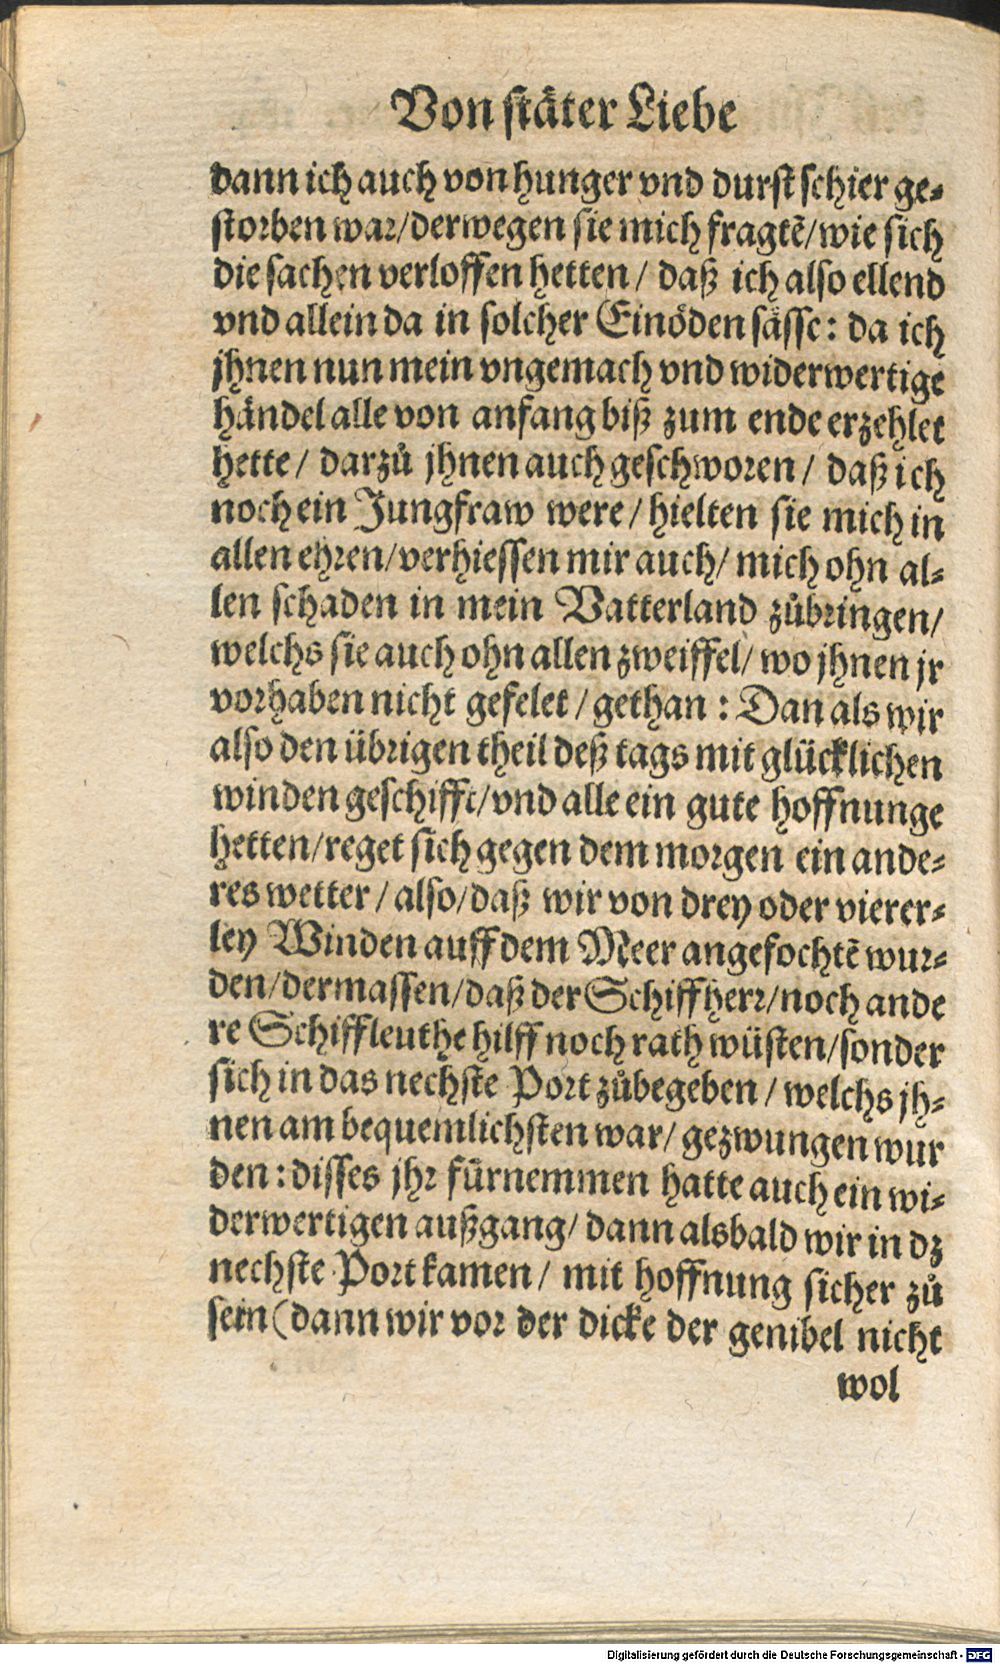 Von stäter Liebe
dann ich auch von hunger vnd durst schier ge-
storben war/derwegen sie mich fragtẽ/wie sich
die sachen verloffen hetten/ daß ich also ellend
vnd allein da in solcher Einöden sässe: da ich
jhnen nun mein vngemach vnd widerwertige
händel alle von anfang biß zum ende erzehlet
hette/ darzů jhnen auch geschworen/ daß ich
noch ein Jungfraw were/ hielten sie mich in
allen ehren/verhiessen mir auch/ mich ohn al-
len schaden in mein Vatterland zůbringen/
welchs sie auch ohn allen zweiffel/ wo jhnen jr
vorhaben nicht gefelet/ gethan: Dan als wir
also den übrigen theil deß tags mit glücklichen
winden geschifft/vnd alle ein gute hoffnunge
hetten/reget sich gegen dem morgen ein ande-
res wetter/ also/daß wir von drey oder vierer-
ley Winden auff dem Meer angefochtẽ wur-
den/dermassen/daß der Schiffherr/noch ande
re Schiffleuthe hilff noch rath wüsten/sonder
sich in das nechste Port zůbegeben/ welchs jh-
nen am bequemlichsten war/ gezwungen wur
den: disses jhr fürnemmen hatte auch ein wi-
derwertigen außgang/ dann alsbald wir in dz
nechste Port kamen/ mit hoffnung sicher zů
sein (dann wir vor der dicke der genibel nicht
wol
Digitalisierung gefördert durch die Deutsche Forschungsgemeinschaft - DFG